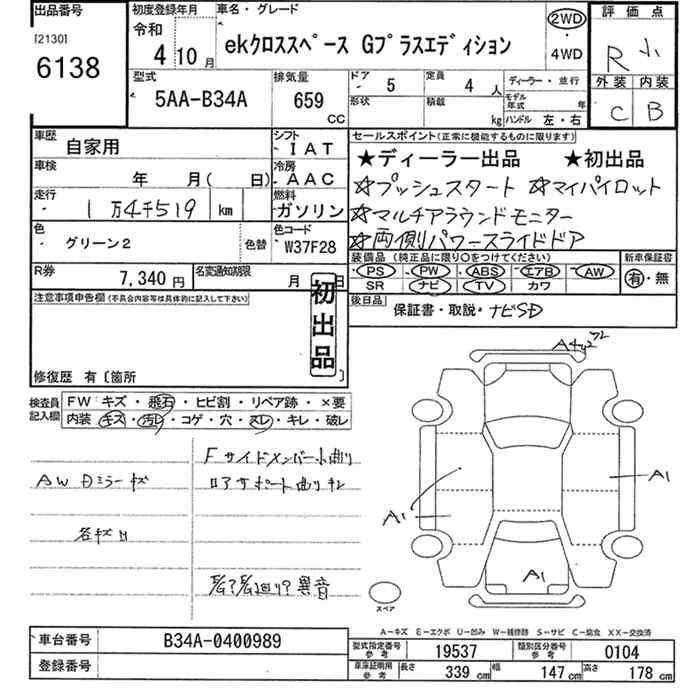 出品番号
[2130]
6138
初度登録年月
令和
4 10 月
車名・グレード
ekクロススペース Gプラスエディション
2WD
・
4WD
評価点
R 小
外装 内装
C B
型式
5AA-B34A
排気量
659
CC
ドア
5
形状
定員
4 人
積載
kg
ディーラー・並行
モデル年式 年
ハンドル 左・右
車歴
自家用
シフト
IAT
車検
年 月( 日)
冷房
AAC
走行
1 万4千519 km
燃料
ガソリン
色
グリーン2
色替
色コード
W37F28
R券
7,340 円
名変通知期限
月 日
セールスポイント(正常に機能するものに限ります)
★ディーラー出品 ★初出品
☆プッシュスタート ☆マイパイロット
☆マルチアラウンドモニター
☆両側パワースライドドア
装備品 (純正品に限り○をつけてください)
PS PW ABS エアB AW
SR ナビ TV カワ
新車保証書
有・無
後日品
保証書・取説・ナビSD
注意事項申告欄(不具合内容等は具体的に記入して下さい)
初出品
修復歴 有〔箇所
検査員記入欄
FW キズ・飛石・ヒビ割・リペア跡・×要
内装 キズ・汚レ・コゲ・穴・スレ・キレ・破レ
Fサイドメンバー小曲り
AW Dミラーキズ
ロアサポート曲り
各キズ
異音
A4
A1
A1
A1
スペア
A-キズ E-エクボ U-凹み W-補修跡 S-サビ C-腐食 XX-交換済
車台番号
B34A-0400989
登録番号
型式指定番号 参考
19537
類別区分番号 参考
0104
車庫証明用 参考
長さ 339 cm 幅 147 cm 高さ 178 cm